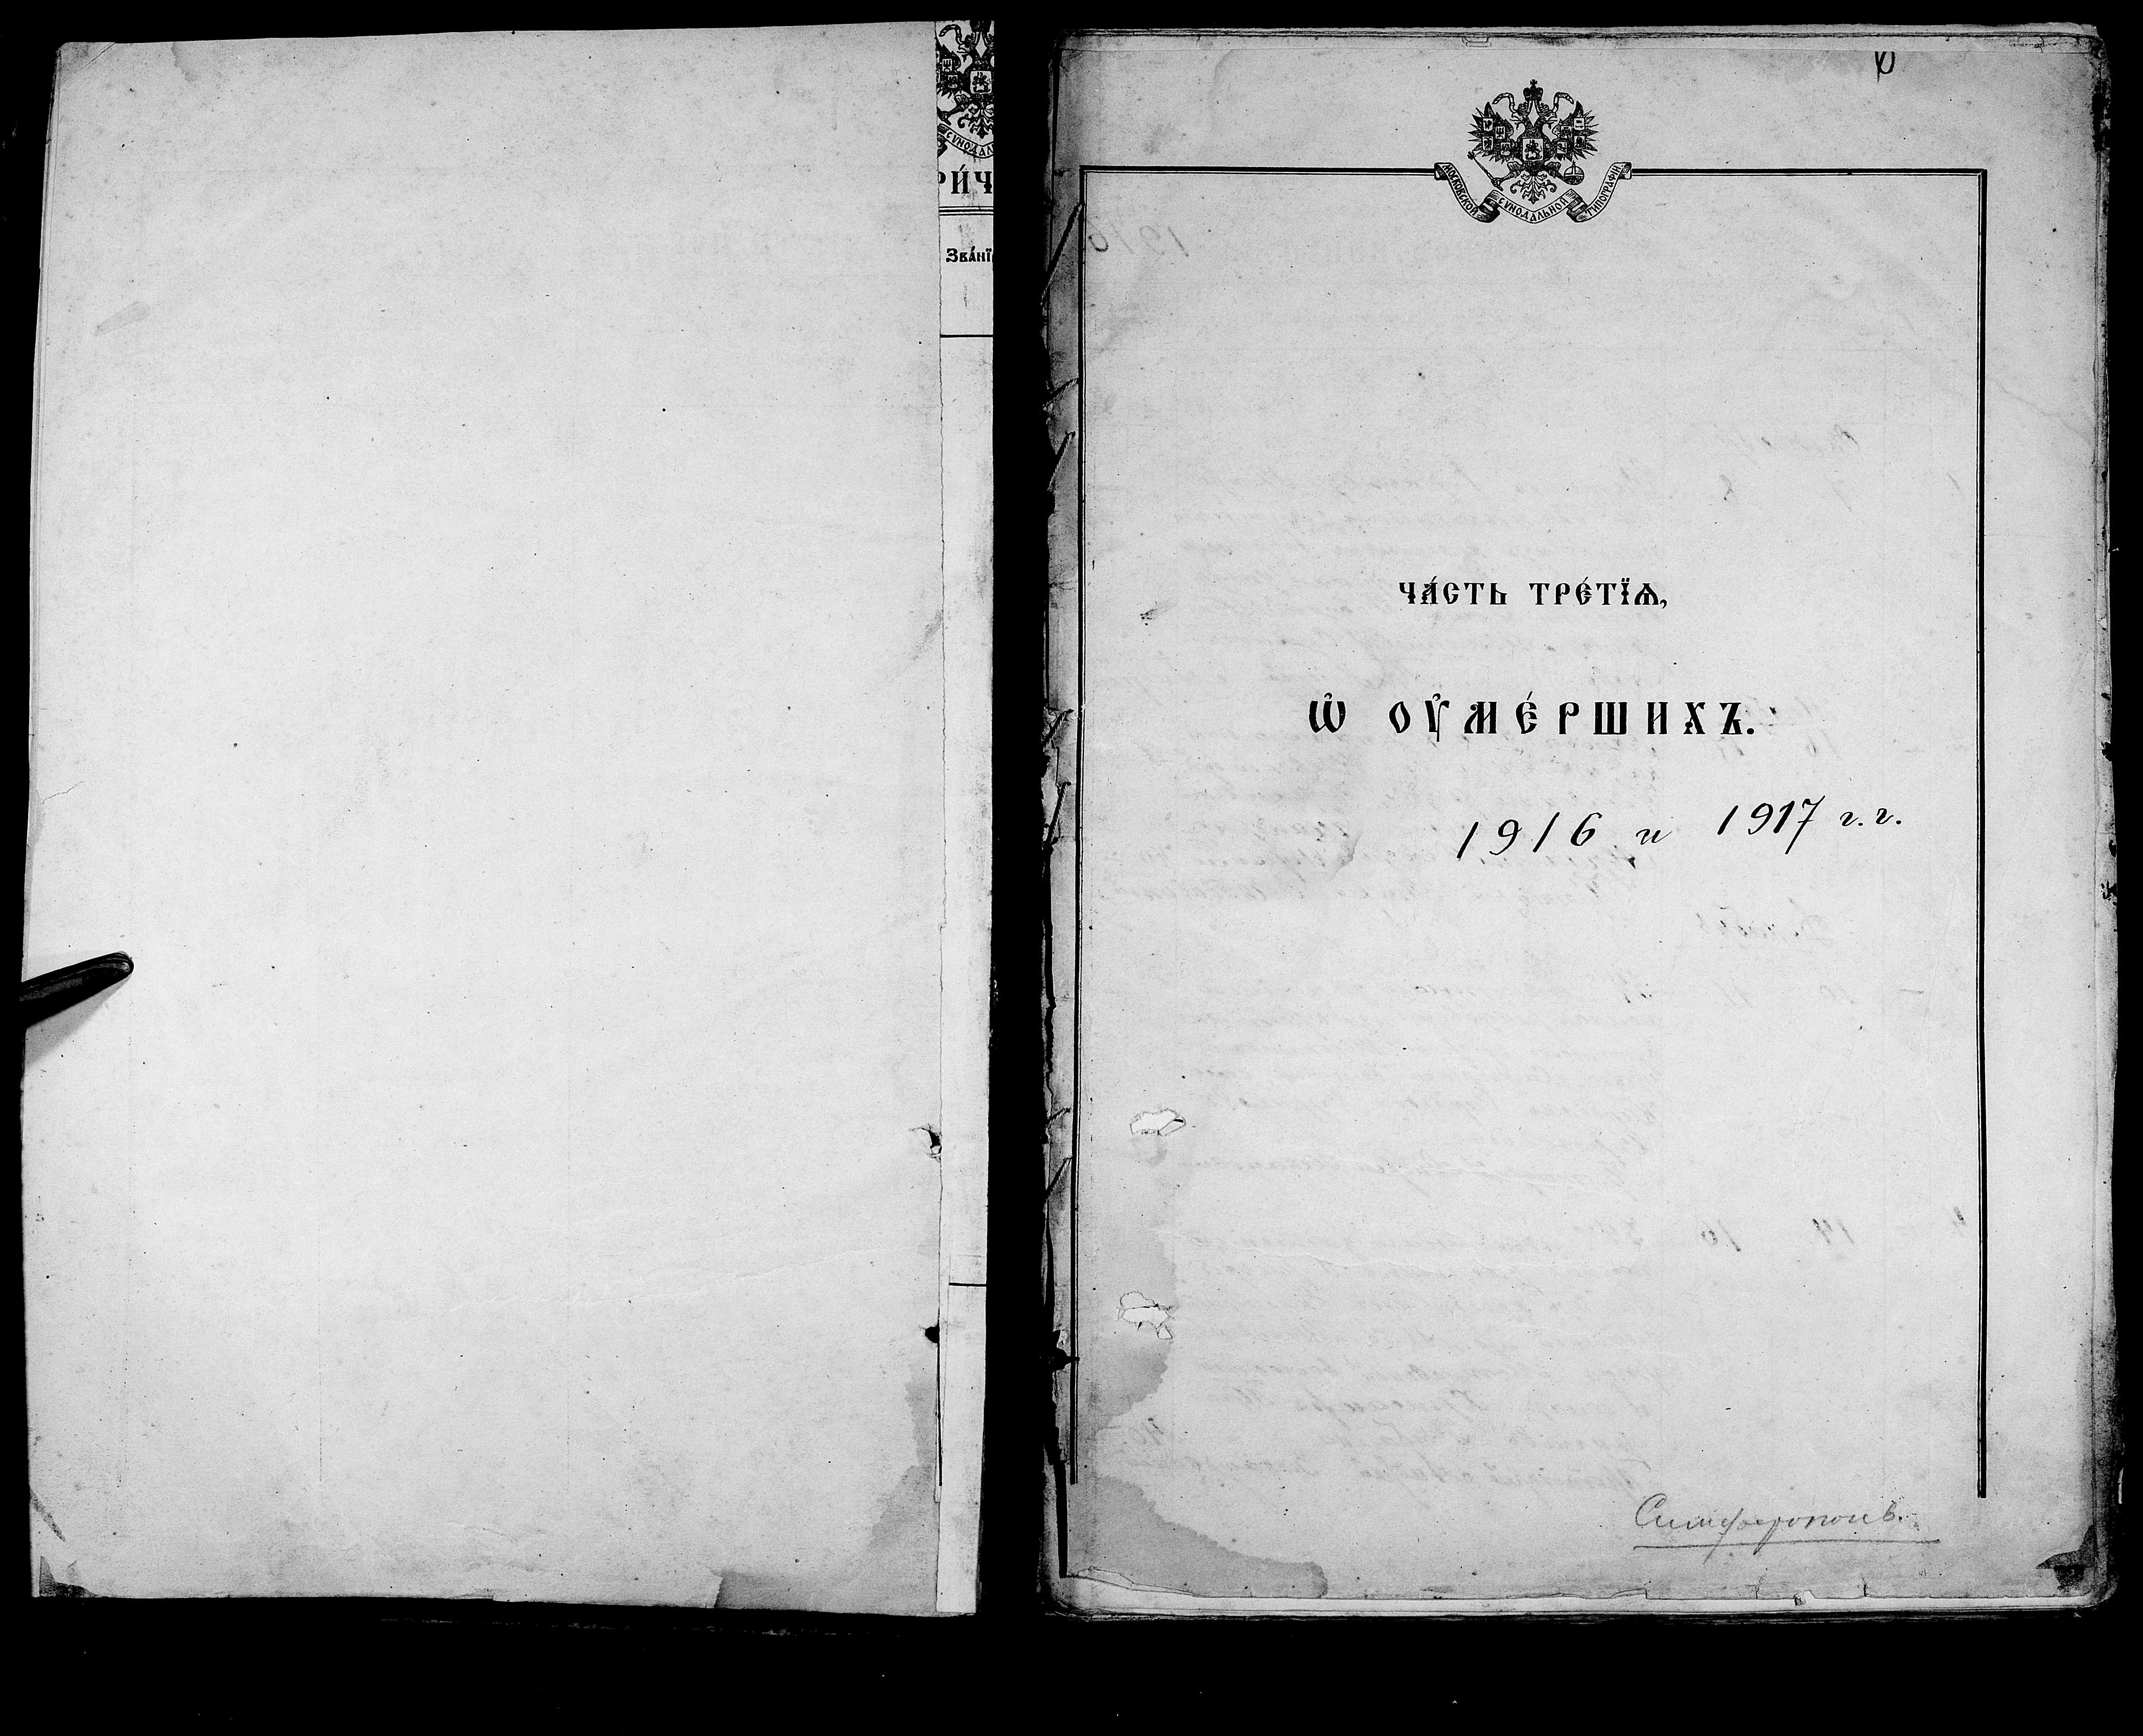 РИ́Ч
Зва́нї
МОСКОВСКОЙ СѴНОДАЛЬНОЙ ТИПОГРАФІИ.
ЧА́СТЬ ТРЕ́ТЇѦ,
Ѡ҆ ОУ҆МЕ́РШИХЪ.
1916 и 1917 г.г.
Симферополь.